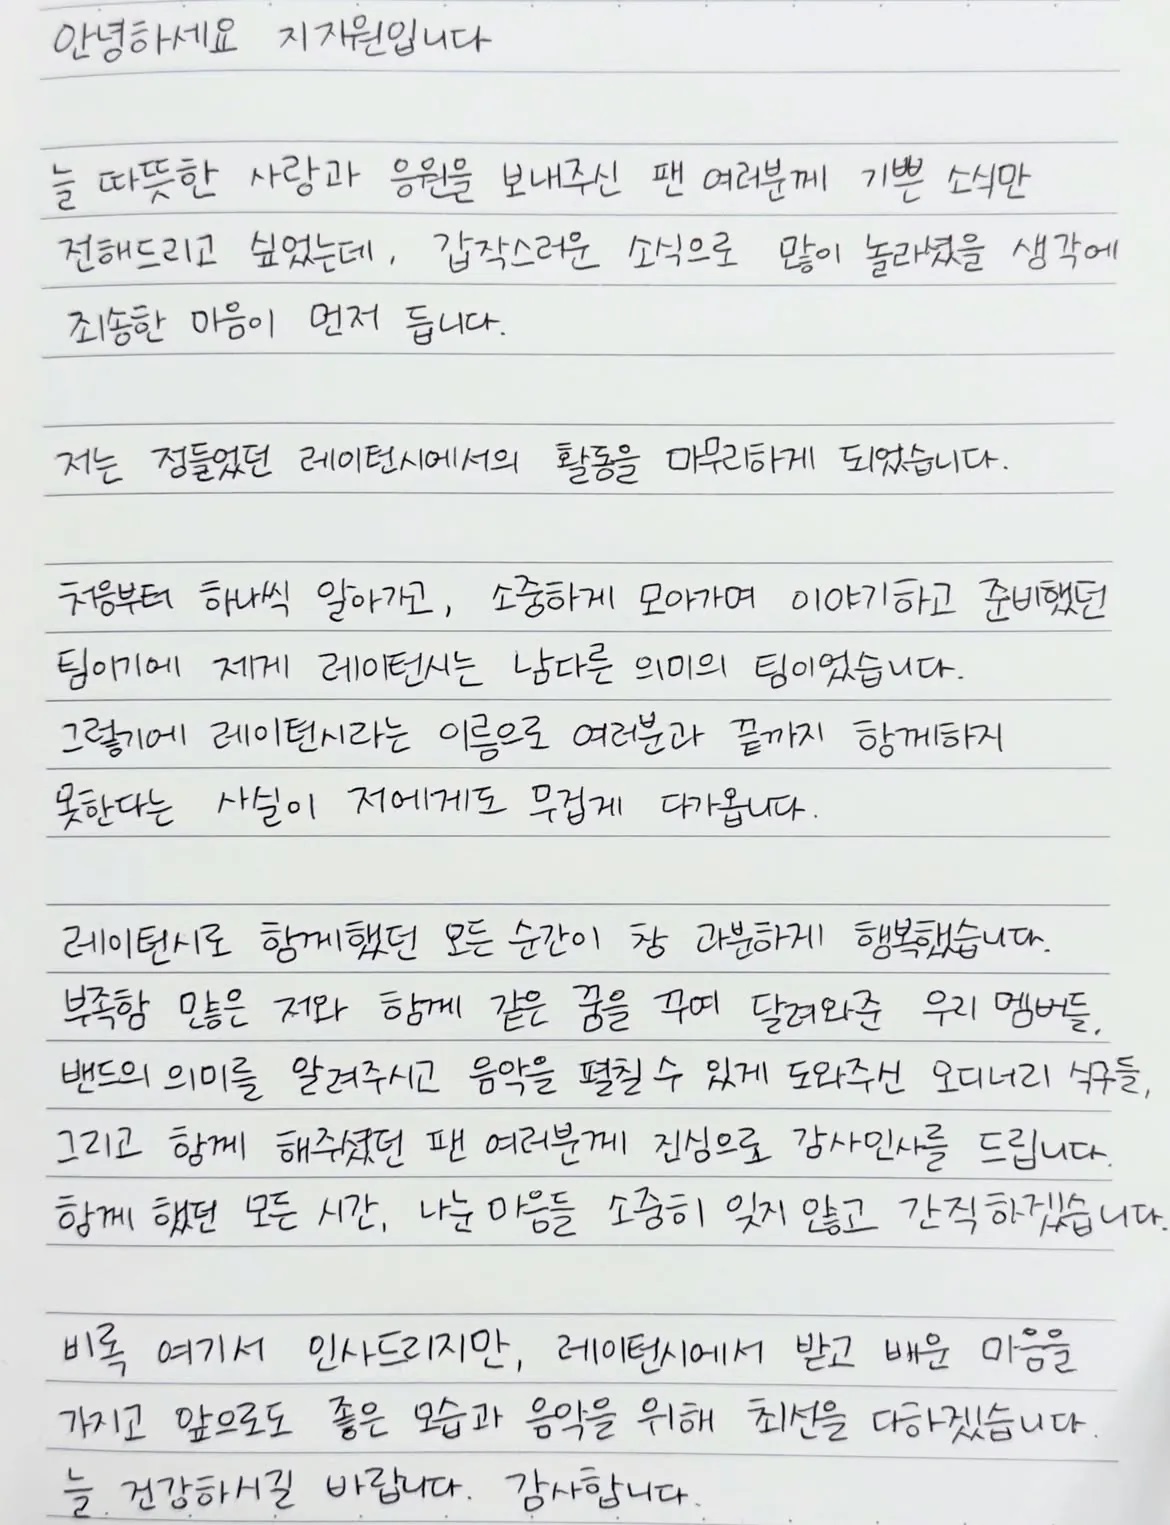 안녕하세요 지지원입니다
늘 따뜻한 사랑과 응원을 보내주신 팬 여러분께 기쁜 소식만
전해드리고 싶었는데, 갑작스러운 소식으로 많이 놀라셨을 생각에
죄송한 마음이 먼저 듭니다.
저는 정들었던 레이턴시에서의 활동을 마무리하게 되었습니다.
처음부터 하나씩 알아가고, 소중하게 모아가며 이야기하고 준비했던
팀이기에 제게 레이턴시는 남다른 의미의 팀이었습니다.
그렇기에 레이턴시라는 이름으로 여러분과 끝까지 함께하지
못한다는 사실이 저에게도 무겁게 다가옵니다.
레이턴시로 함께했던 모든 순간이 참 과분하게 행복했습니다.
부족함 많은 저와 함께 같은 꿈을 꾸며 달려와준 우리 멤버들,
밴드의 의미를 알려주시고 음악을 펼칠 수 있게 도와주신 오디너리 식구들,
그리고 함께 해주셨던 팬 여러분께 진심으로 감사인사를 드립니다.
함께 했던 모든 시간, 나눈 마음들 소중히 잊지 않고 간직하겠습니다.
비록 여기서 인사드리지만, 레이턴시에서 받고 배운 마음을
가지고 앞으로도 좋은 모습과 음악을 위해 최선을 다하겠습니다.
늘 건강하시길 바랍니다. 감사합니다.